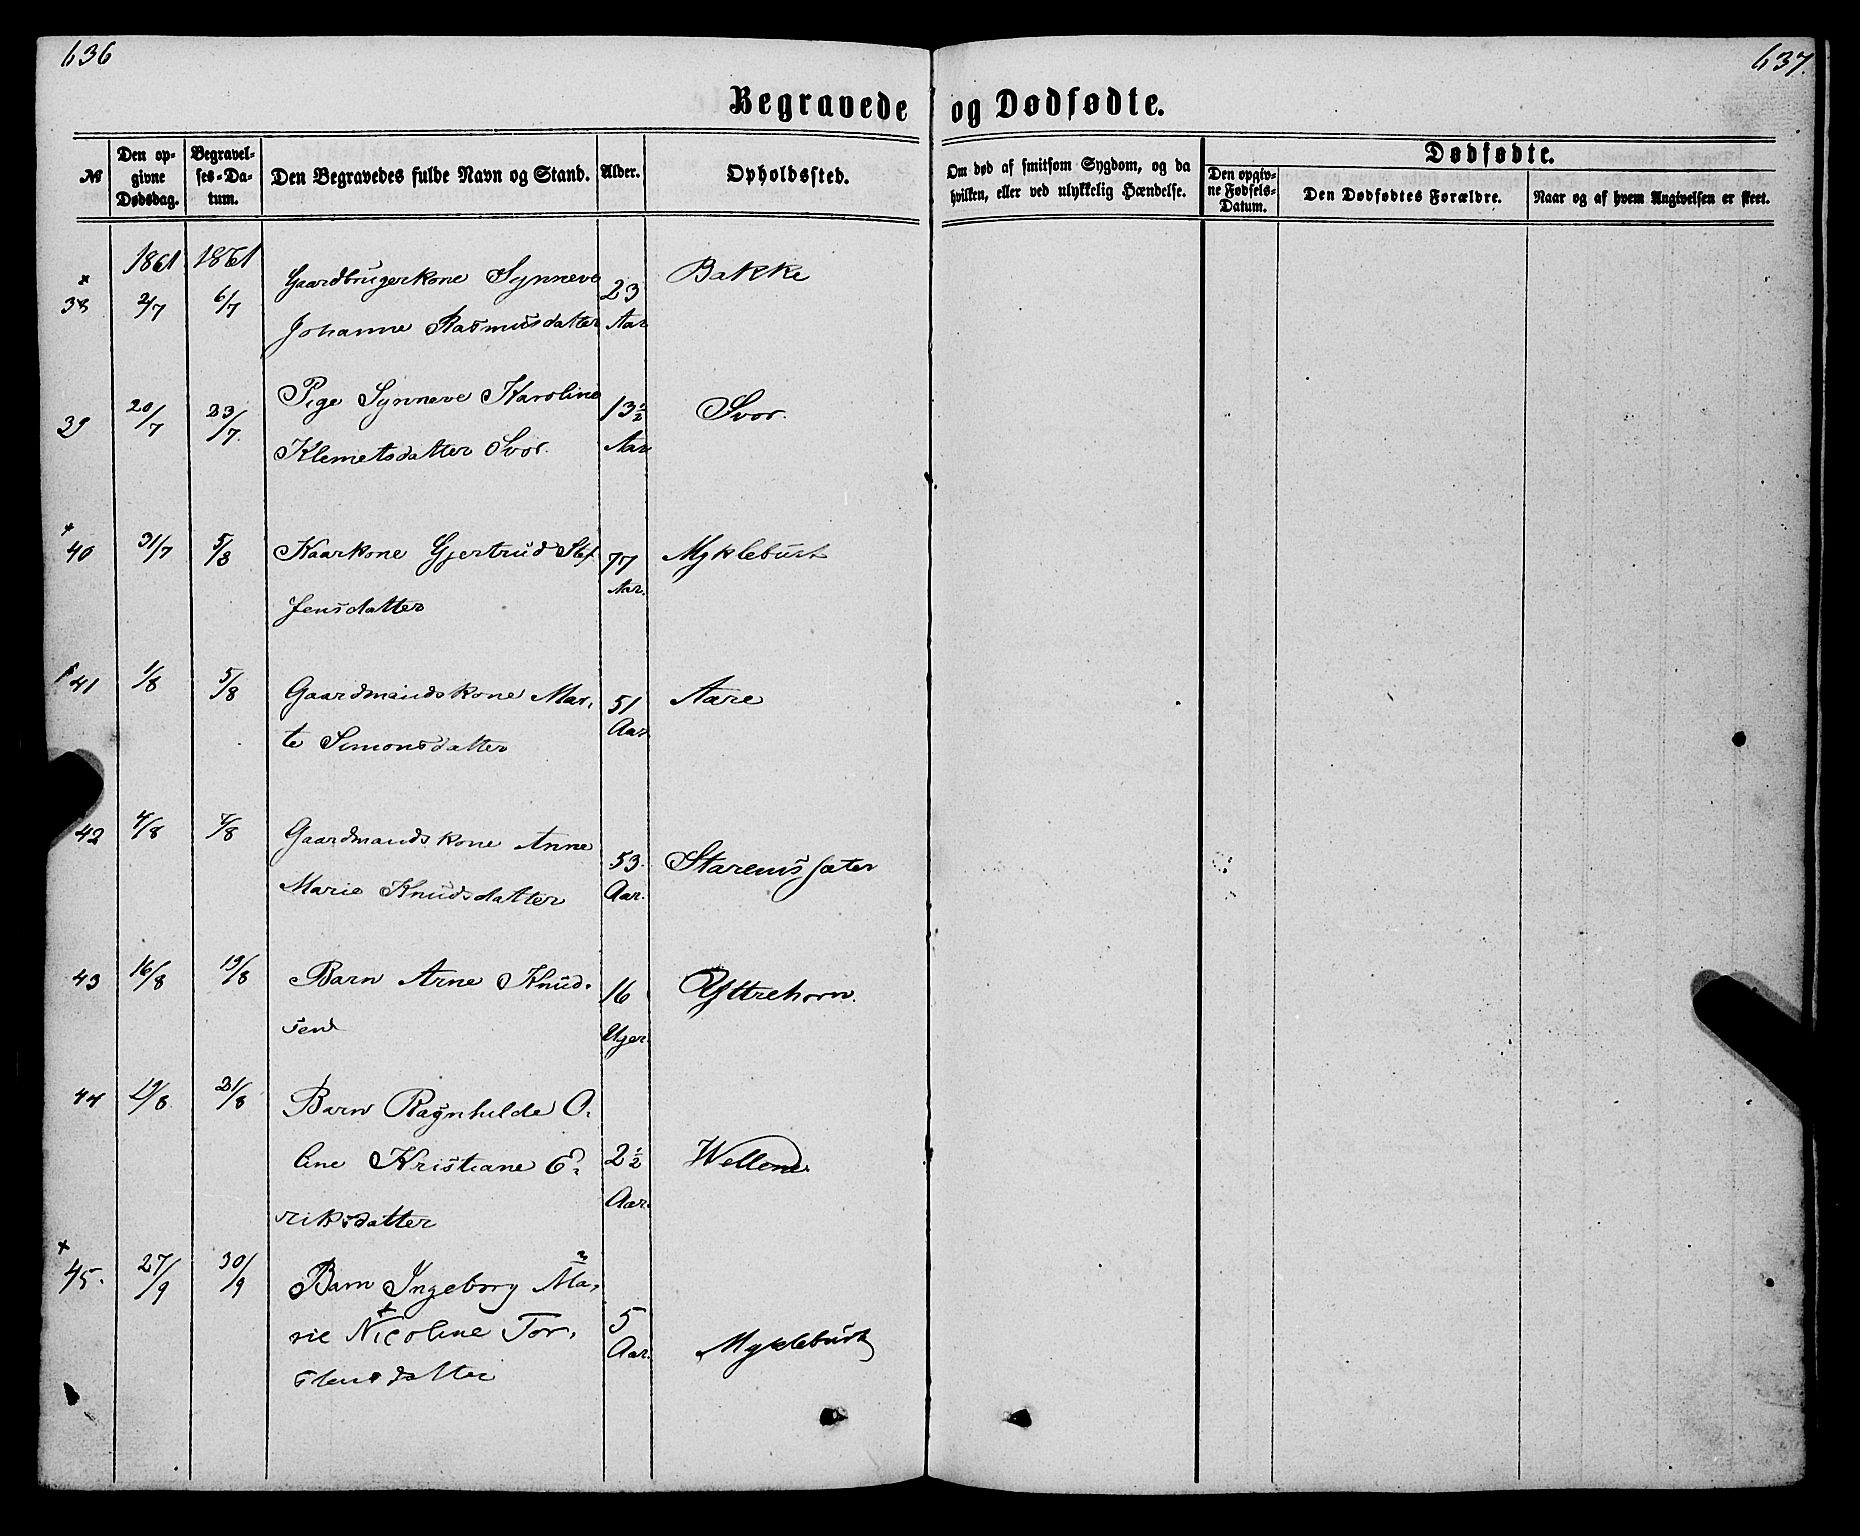 636
637.
Begravede og Dødfødte.
№
Den opgivne Dødsdag.
Begravelses-Datum.
Den Begravedes fulde Navn og Stand.
Alder.
Opholdssted.
Om død af smitsom Sygdom, og da hvilken, eller ved ulykkelig Hændelse.
Dødfødte.
Den opgivne Fødsels-Datum.
Den Dødfødtes Forældre.
Naar og af hvem Angivelsen er skeet.
1861 1861
38 2/7 6/7 Gaardbrugerkone Synneve 23 Bakke
Johanne Rasmusdatter Aar
39 20/7 23/7. Pige Synneve Karoline 13½ Svor.
Klemetsdatter Svor. Aar
40 31/7 5/8 Kaarkone Gjertrud Stef 77 Myklebust
fensdatter Aar.
41 1/8 5/8 Gaardmandskone Mar- 51 Aare
te Simonsdatter Aar
42 4/8 7/8 Gaardmandskone Anne 53. Starenssæter
Marie Knudsdatter Aar.
43 16/8 19/8 Barn Arne Knud- 16 Yttrehorn.
sen Uger.
44 19/8 21/8 Barn Ragnhilde O-
line Kristiane E- 2½ Wellene
riksdatter Aar.
45. 27/9 30/9 Barn Ingeborg Ma-
rie Nicoline Tor- 5 Myklebust
stensdatter Aar.